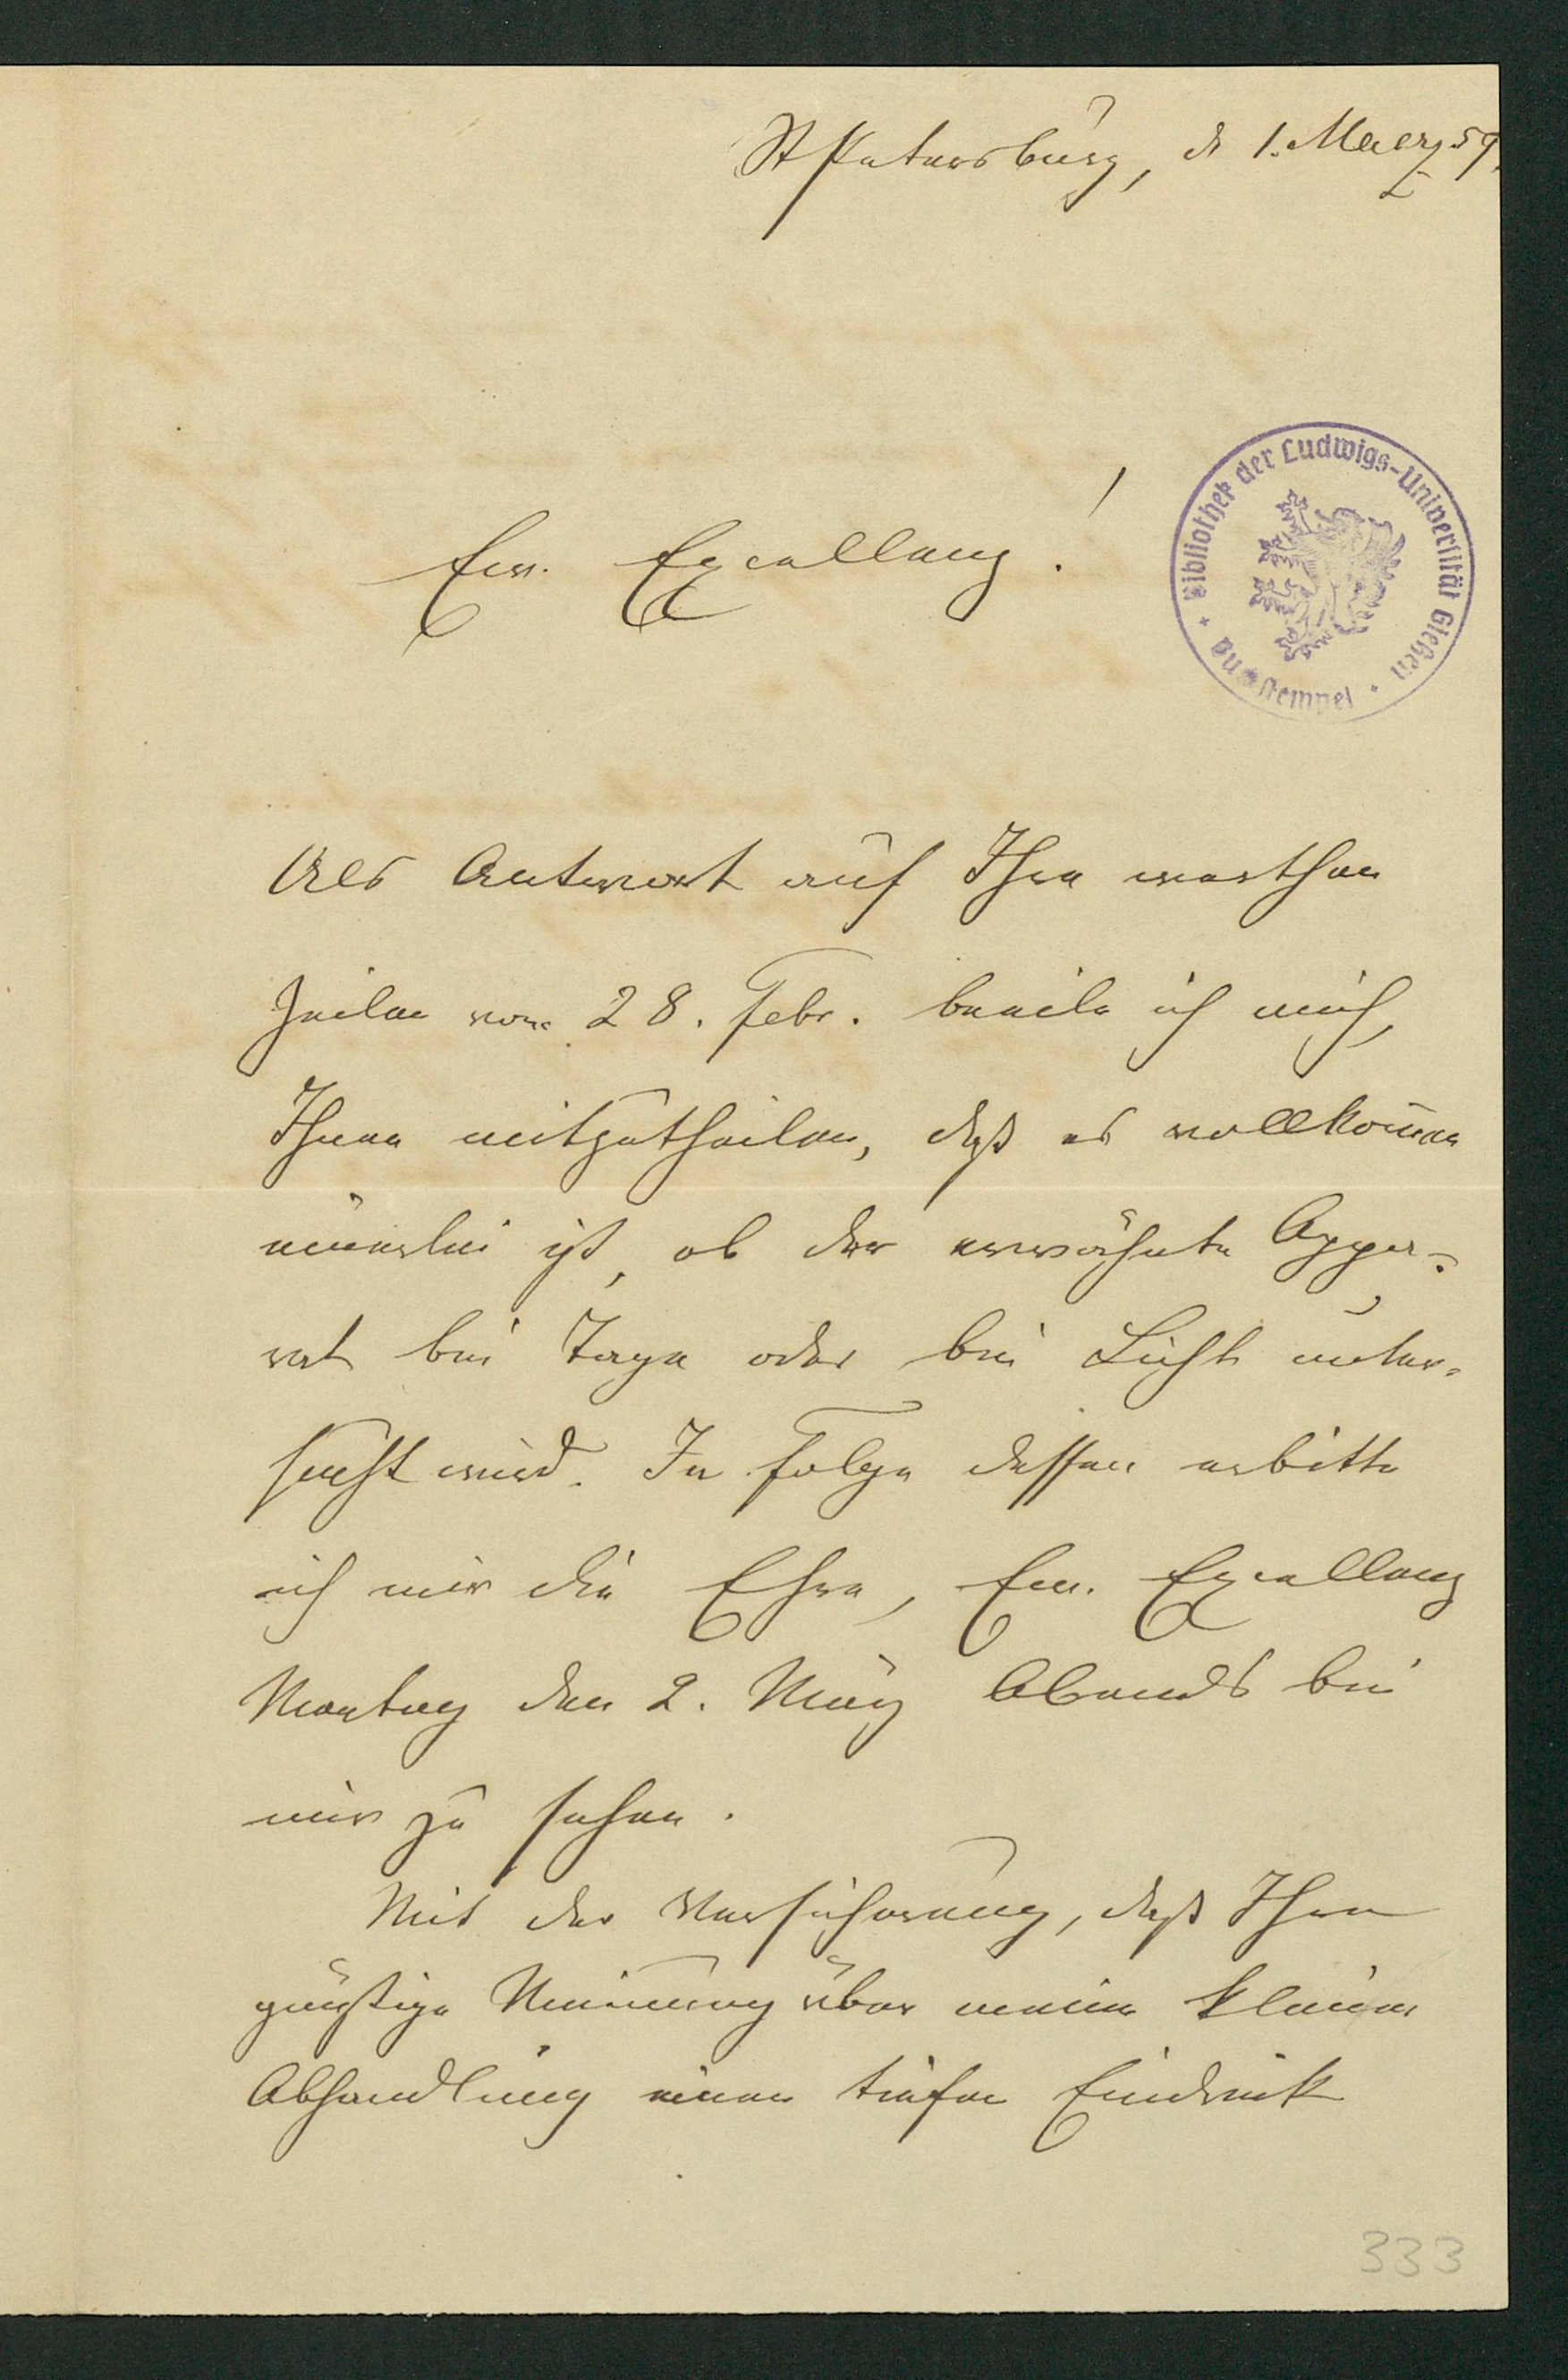 St Petersburg, d 1. Maerz 59.
Ew. Excellenz!
Bibliothek der Ludwigs-Universität Gießen
Als Antwort auf Ihre werthen
Zeilen vom 28. Febr. beeile ich mich,
Ihnen mitzutheilen, daß es vollkom̅en
einerlei ist, ob der erwähnte Appa-
rat bei Tage oder bei Licht unter-
sucht wird. In Folge dessen erbitte
ich mir die Ehre, Ew. Excellenz
Montag den 2. März Abends bei
mir zu sehen.
Mit der Versicherung, daß Ihre
günstige Meinung über meine kleine
Abhandlung einen tiefen Eindruck
333